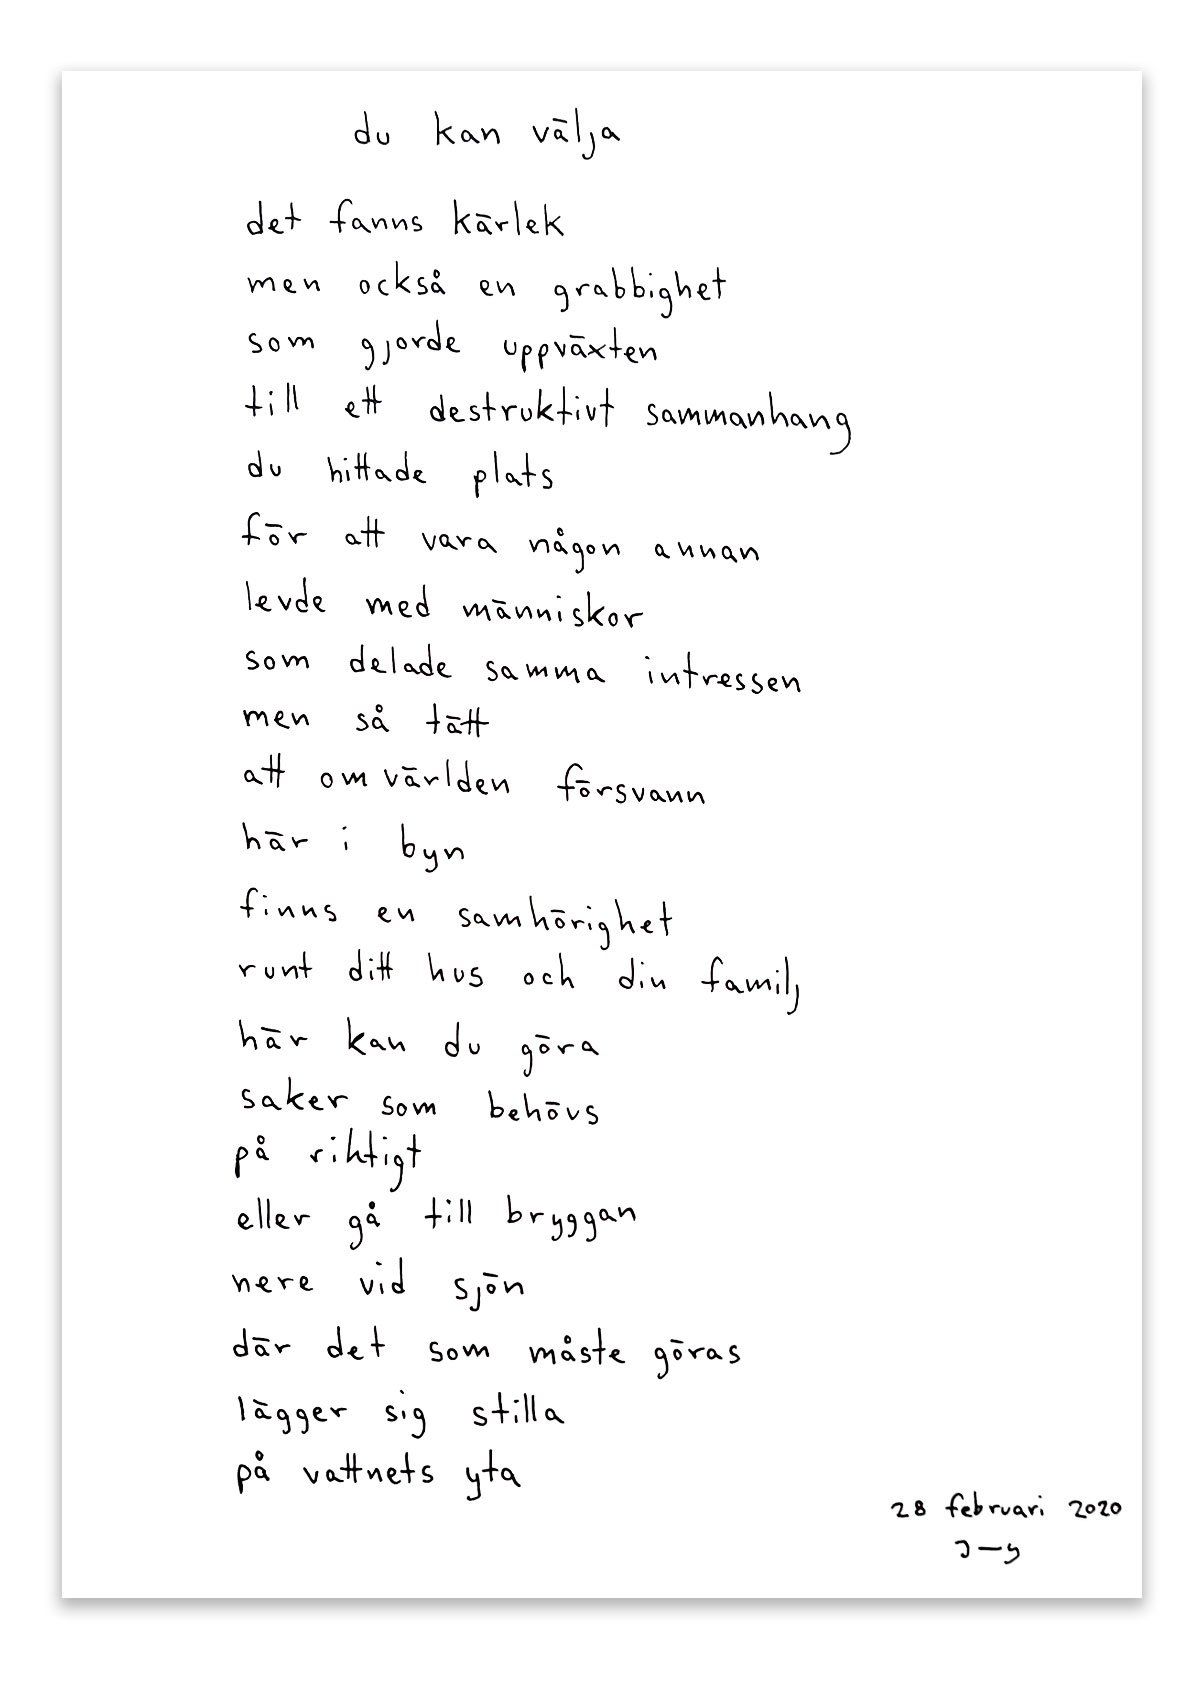 du kan välja
det fanns kärlek
men också en grabbighet
som gjorde uppväxten
till ett destruktivt sammanhang
du hittade plats
för att vara någon annan
levde med människor
som delade samma intressen
men så tätt
att om världen försvann
här i byn
finns en samhörighet
runt ditt hus och din familj
här kan du göra
saker som behövs
på riktigt
eller gå till bryggan
nere vid sjön
där det som måste göras
lägger sig stilla
på vattnets yta
28 februari 2020
J—y